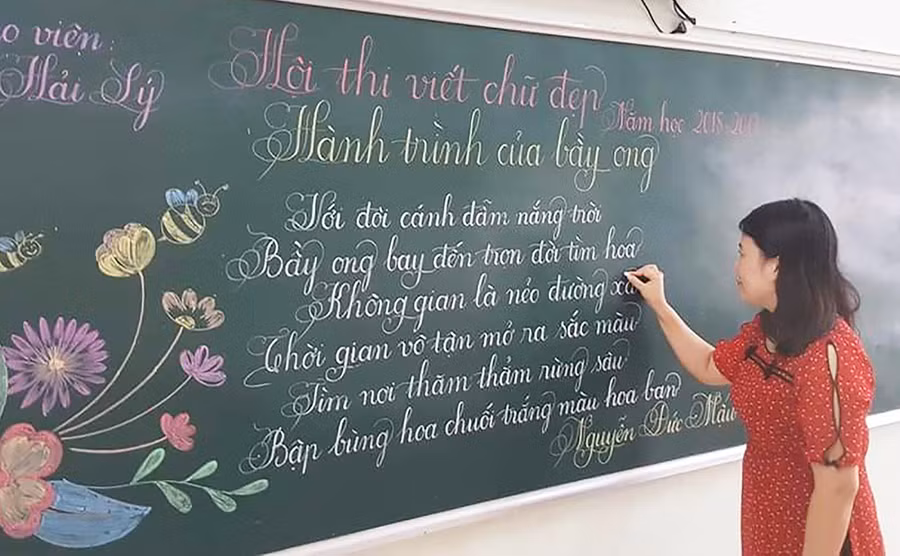 o viên:
Hải Lý
Hội thi viết chữ đẹp
Năm học 2018
Hành trình của bầy ong
Với đôi cánh đẫm nắng trời
Bầy ong bay đến trọn đời tìm hoa
Không gian là nẻo đường xa
Thời gian vô tận mở ra sắc màu
Tìm nơi thăm thẳm rừng sâu
Bập bùng hoa chuối trắng màu hoa ban
Nguyễn Đức Mậu